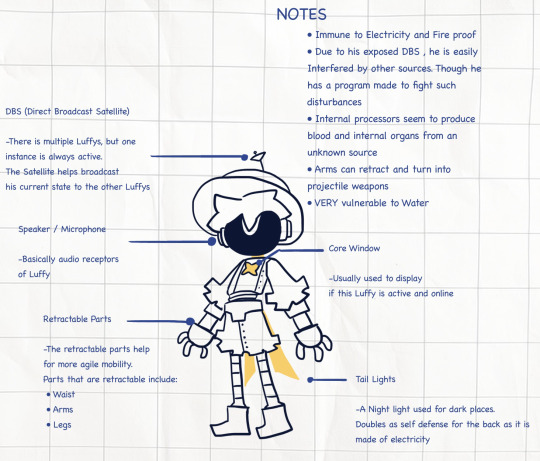 NOTES
• Immune to Electricity and Fire proof
• Due to his exposed DBS , he is easily
Interfered by other sources. Though he
has a program made to fight such
disturbances
• Internal processors seem to produce
blood and internal organs from an
unknown source
• Arms can retract and turn into
projectile weapons
• VERY vulnerable to Water
DBS (Direct Broadcast Satellite)
-There is multiple Luffys, but one
instance is always active.
The Satellite helps broadcast
his current state to the other Luffys
Speaker / Microphone
-Basically audio receptors
of Luffy
Core Window
-Usually used to display
if this Luffy is active and online
Retractable Parts
-The retractable parts help
for more agile mobility.
Parts that are retractable include:
• Waist
• Arms
• Legs
Tail Lights
-A Night light used for dark places.
Doubles as self defense for the back as it is
made of electricity